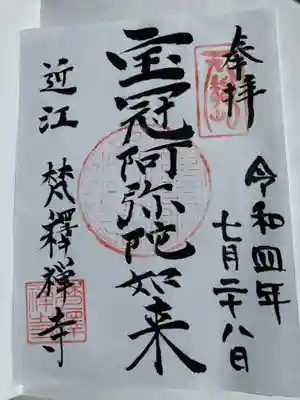 奉拝
令和四年
七月二十八日
宝冠阿弥陀如来
近江 梵釋禅寺